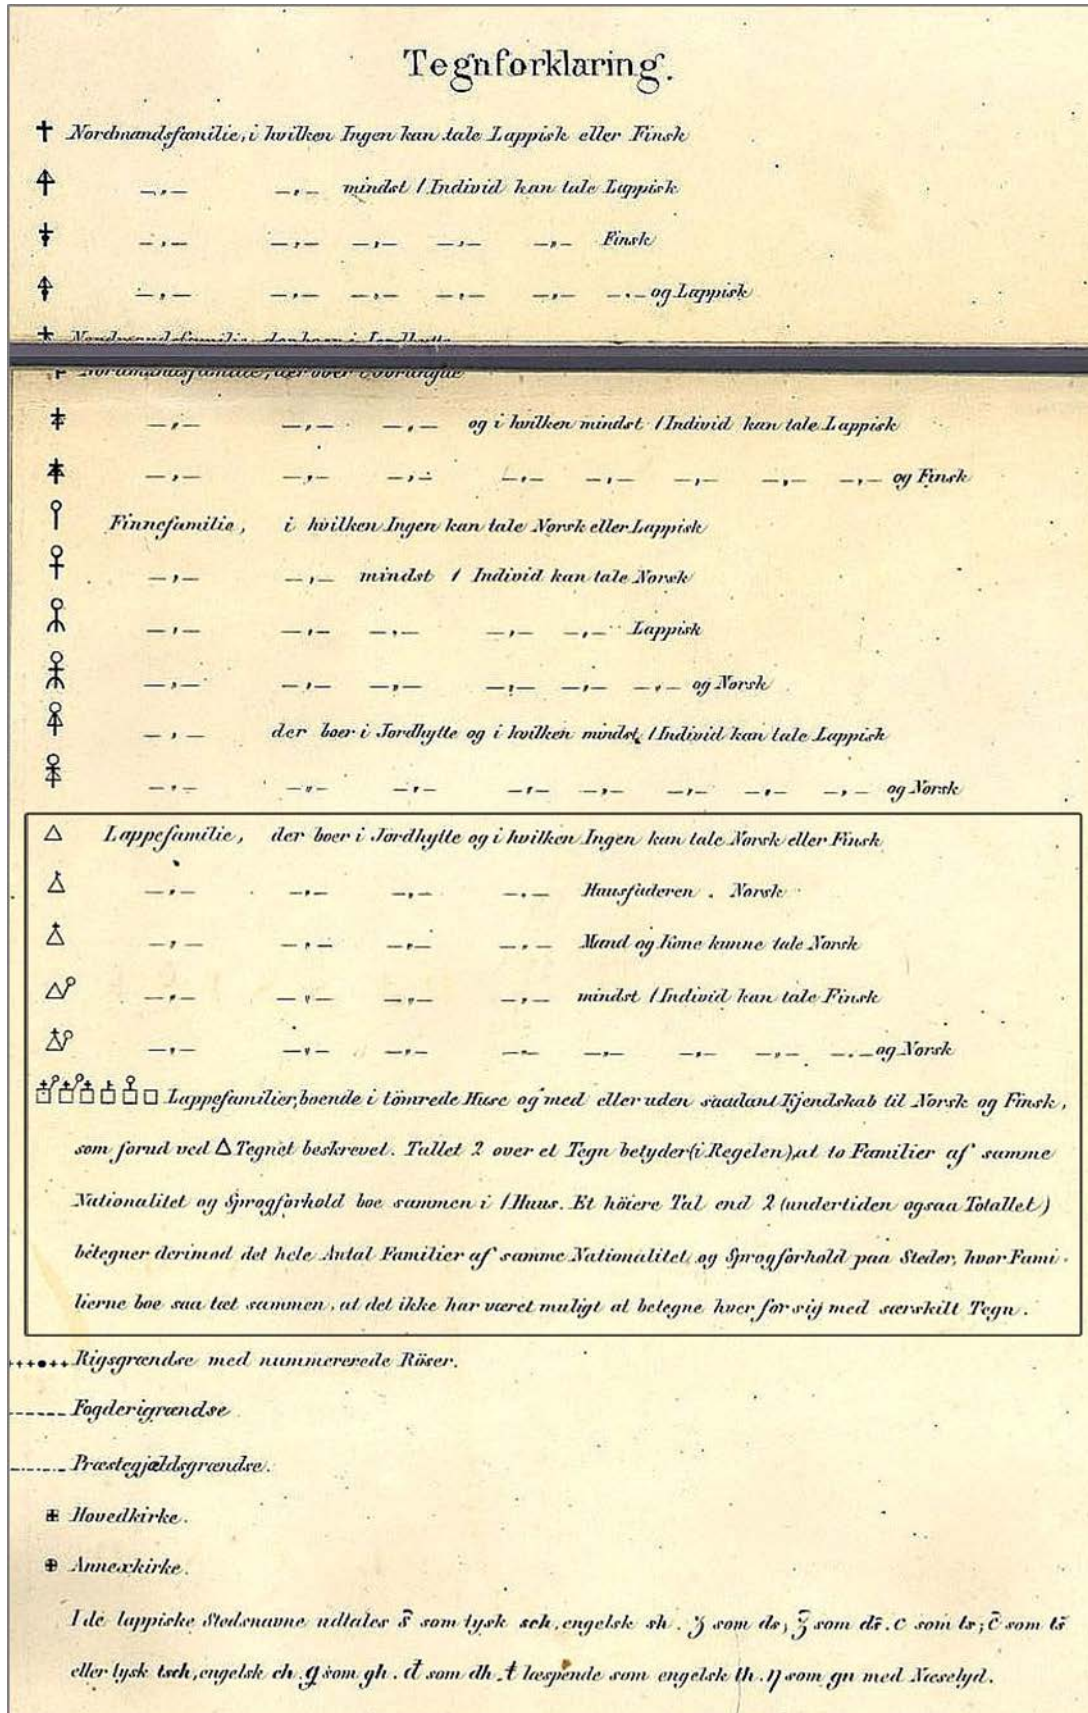 Tegnforklaring.
Nordmandsfamilie, i hvilken Ingen kan tale Lappisk eller Finsk
—„— —„— mindst 1 Individ kan tale Lappisk
—„— —„— —„— —„— —„— Finsk
—„— —„— —„— —„— —„— —„— og Lappisk
Nordmandsfamilie, der boer i Jordhytte
Nordmandsfamilie, der boer i Jordhytte
—„— —„— —„— og i hvilken mindst 1 Individ kan tale Lappisk
—„— —„— —„— —„— —„— —„— —„— —„— og Finsk
Finnefamilie, i hvilken Ingen kan tale Norsk eller Lappisk
—„— —„— mindst 1 Individ kan tale Norsk
—„— —„— —„— —„— —„— Lappisk
—„— —„— —„— —„— —„— —„— og Norsk
—„— der boer i Jordhytte og i hvilken mindst 1 Individ kan tale Lappisk
—„— —„— —„— —„— —„— —„— —„— —„— og Norsk
Lappefamilie, der boer i Jordhytte og i hvilken Ingen kan tale Norsk eller Finsk
—„— —„— —„— —„— Hausfaderen „ Norsk
—„— —„— —„— —„— Mand og Kone kunne tale Norsk
—„— —„— —„— —„— mindst 1 Individ kan tale Finsk
—„— —„— —„— —„— —„— —„— —„— —„— og Norsk
Lappefamilier, boende i tömrede Huse og med eller uden saadant Kjendskab til Norsk og Finsk,
som forud ved △ Tegnet beskrevet. Tallet 2 over et Tegn betyder (i Regelen), at to Familier af samme
Nationalitet og Sprogforhold boe sammen i 1 Huus. Et höiere Tal end 2 (undertiden ogsaa Totallet)
betegner derimod det hele Antal Familier af samme Nationalitet og Sprogforhold paa Steder, hvor Fami-
lierne boe saa tæt sammen, at det ikke har været muligt at betegne hver for sig med særskilt Tegn.
Rigsgrændse med nummererede Röser.
Fogderigrændse
Præstegjældsgrændse.
Hovedkirke.
Annexkirke.
I de lappiske Stedsnavne udtales s̄ som tysk sch, engelsk sh. ʒ som ds, ʒ̄ som ds̄. c som ts; c̄ som ts̄
eller tysk tsch, engelsk ch. g som gh. đ som dh. ŧ læspende som engelsk th. ŋ som gn med Næselyd.